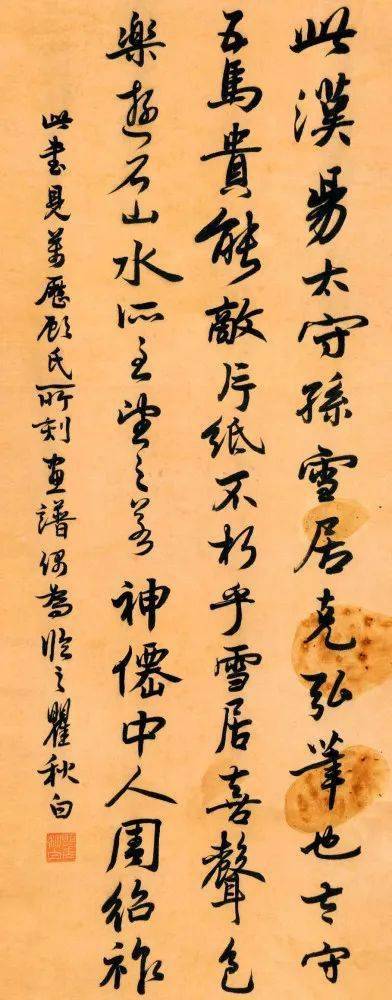 此漢昜太守孫雪居克弘筆也太守
五馬貴能敵片紙不朽乎雪居喜聲色
樂遊名山水所至望之若神僊中人周紹祚
此書見萬曆顧氏所刻画譜偶為臨之瞿秋白